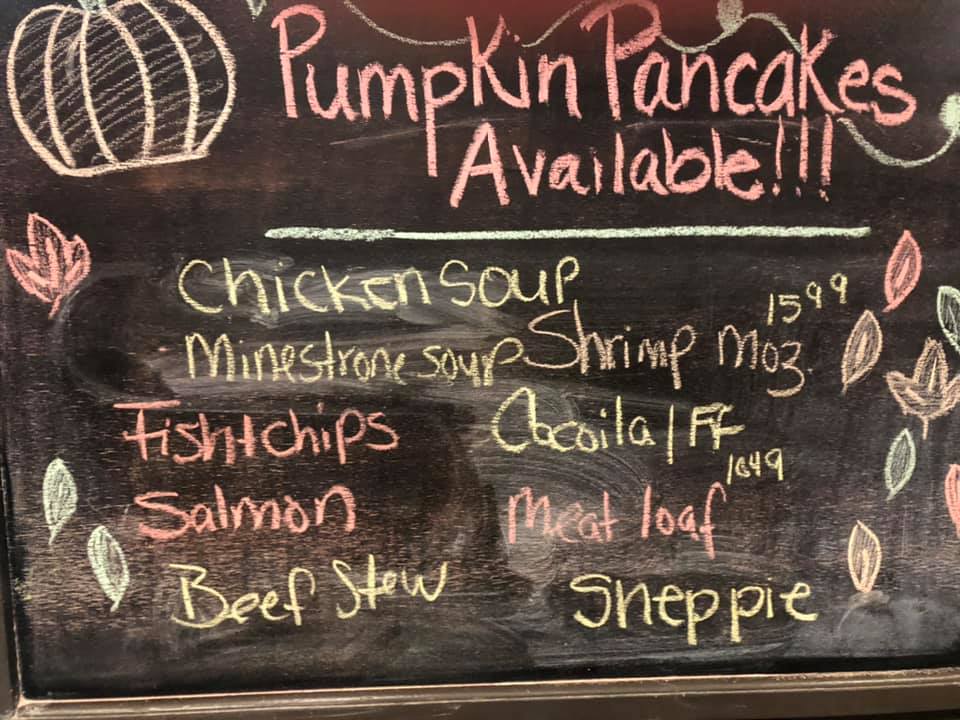 Pumpkin Pancakes
Available!!!
Chicken Soup
Minestrone soup Shrimp Moz. 15 99
Fish+chips Cocoila / FF 1049
Salmon Meat loaf
Beef Stew Sheppie